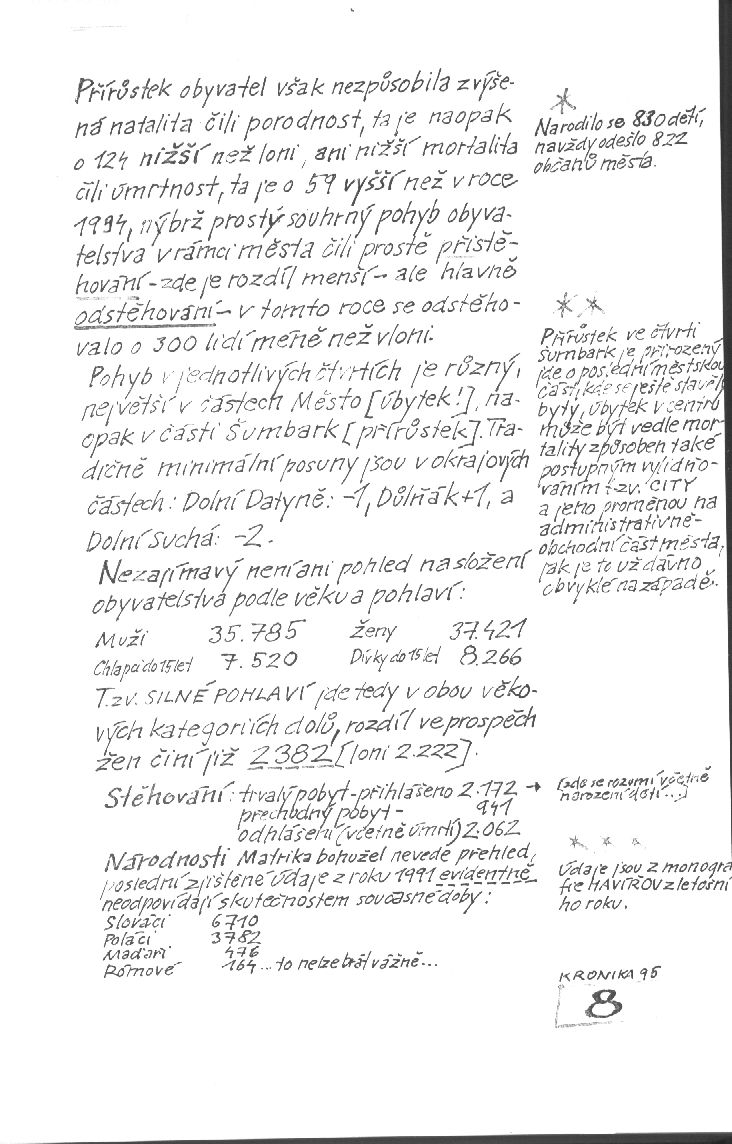 Přírůstek obyvatel však nezpůsobila zvýše-
ná natalita čili porodnost, ta je naopak
o 124 nižší než loni, ani nižší mortalita
čili úmrtnost, ta je o 59 vyšší než v roce
1994, nýbrž prostý souhrný pohyb obyva-
telstva v rámci města čili prostě přistě-
hování - zde je rozdíl menší - ale hlavně
odstěhování - v tomto roce se odstěho-
valo o 300 lidí méně než vloni.
Pohyb v jednotlivých čtvrtích je různý,
největší v částech Město [úbytek!], na-
opak v části Šumbark [přírůstek]. Tra-
dičně minimální posuny jsou v okrajových
částech: Dolní Datyně: -1, Důlňák +1, a
Dolní Suchá: -2.
Nezajímavý není ani pohled na složení
obyvatelstva podle věku a pohlaví:
Muži 35.785 Ženy 37.421
Chlapci do 15 let 7.520 Dívky do 15 let 8.266
T.zv. SILNÉ POHLAVÍ jde tedy v obou věko-
vých kategoriích dolů, rozdíl ve prospěch
žen činí již 2382 [loni 2.222].
Stěhování: trvalý pobyt - přihlášeno 2.172 →
přechodný pobyt - 941
odhlášení (včetně úmrtí) 2.062
Národnosti Matrika bohužel nevede přehled,
poslední zjištěné údaje z roku 1991 evidentně
neodpovídají skutečnostem současné doby:
Slováci 6710
Poláci 3782
Maďaři 476
Rómové 164 ... to nelze brát vážně...
*
Narodilo se 830 dětí,
navždy odešlo 822
občanů města.
* *
Přírůstek ve čtvrti
Šumbark je přirozený
jde o poslední městskou
část, kde se ještě stavěly
byty, úbytek v centru
může být vedle mor-
tality způsoben také
postupným vylidňo-
váním t.zv. CITY
a jeho proměnou na
administrativně-
obchodní část města,
jak je to už dávno
obvyklé na západě.
[zde se rozumí včetně
narození dětí...]
* * *
Údaje jsou z monogra
fie HAVÍŘOV z letošní
ho roku.
KRONIKA 95
8